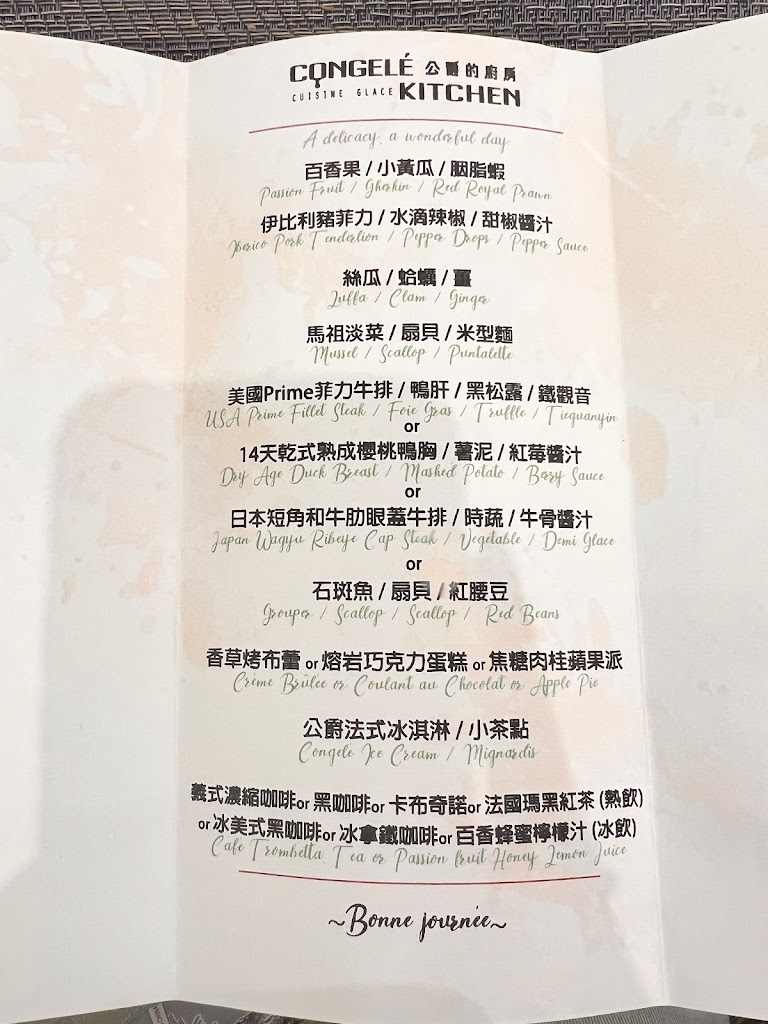 CONGELÉ 公爵的廚房
CUISINE GLACE KITCHEN
A delicacy, a wonderful day
百香果 / 小黃瓜 / 胭脂蝦
Passion Fruit / Gherkin / Red Royal Prawn
伊比利豬菲力 / 水滴辣椒 / 甜椒醬汁
Iberico Pork Tenderlion / Pepper Drops / Pepper Sauce
絲瓜 / 蛤蠣 / 薑
Luffa / Clam / Ginger
馬祖淡菜 / 扇貝 / 米型麵
Mussel / Scallop / Puntalette
美國Prime菲力牛排 / 鴨肝 / 黑松露 / 鐵觀音
USA Prime Fillet Steak / Foie Gras / Truffle / Tieguanyin
or
14天乾式熟成櫻桃鴨胸 / 薯泥 / 紅莓醬汁
Dry Age Duck Breast / Mashed Potato / Berry Sauce
or
日本短角和牛肋眼蓋牛排 / 時蔬 / 牛骨醬汁
Japan Wagyu Ribeye Cap Steak / Vegetable / Demi Glace
or
石斑魚 / 扇貝 / 紅腰豆
Grouper / Scallop / Scallop / Red Beans
香草烤布蕾 or 熔岩巧克力蛋糕 or 焦糖肉桂蘋果派
Crème Brûlee or Coulant au Chocolat or Apple Pie
公爵法式冰淇淋 / 小茶點
Congele Ice Cream / Mignardis
義式濃縮咖啡or 黑咖啡or 卡布奇諾or 法國瑪黑紅茶 (熱飲)
or 冰美式黑咖啡or 冰拿鐵咖啡or 百香蜂蜜檸檬汁 (冰飲)
Cafe Trombetta, Tea or Passion fruit Honey Lemon Juice
~Bonne journée~